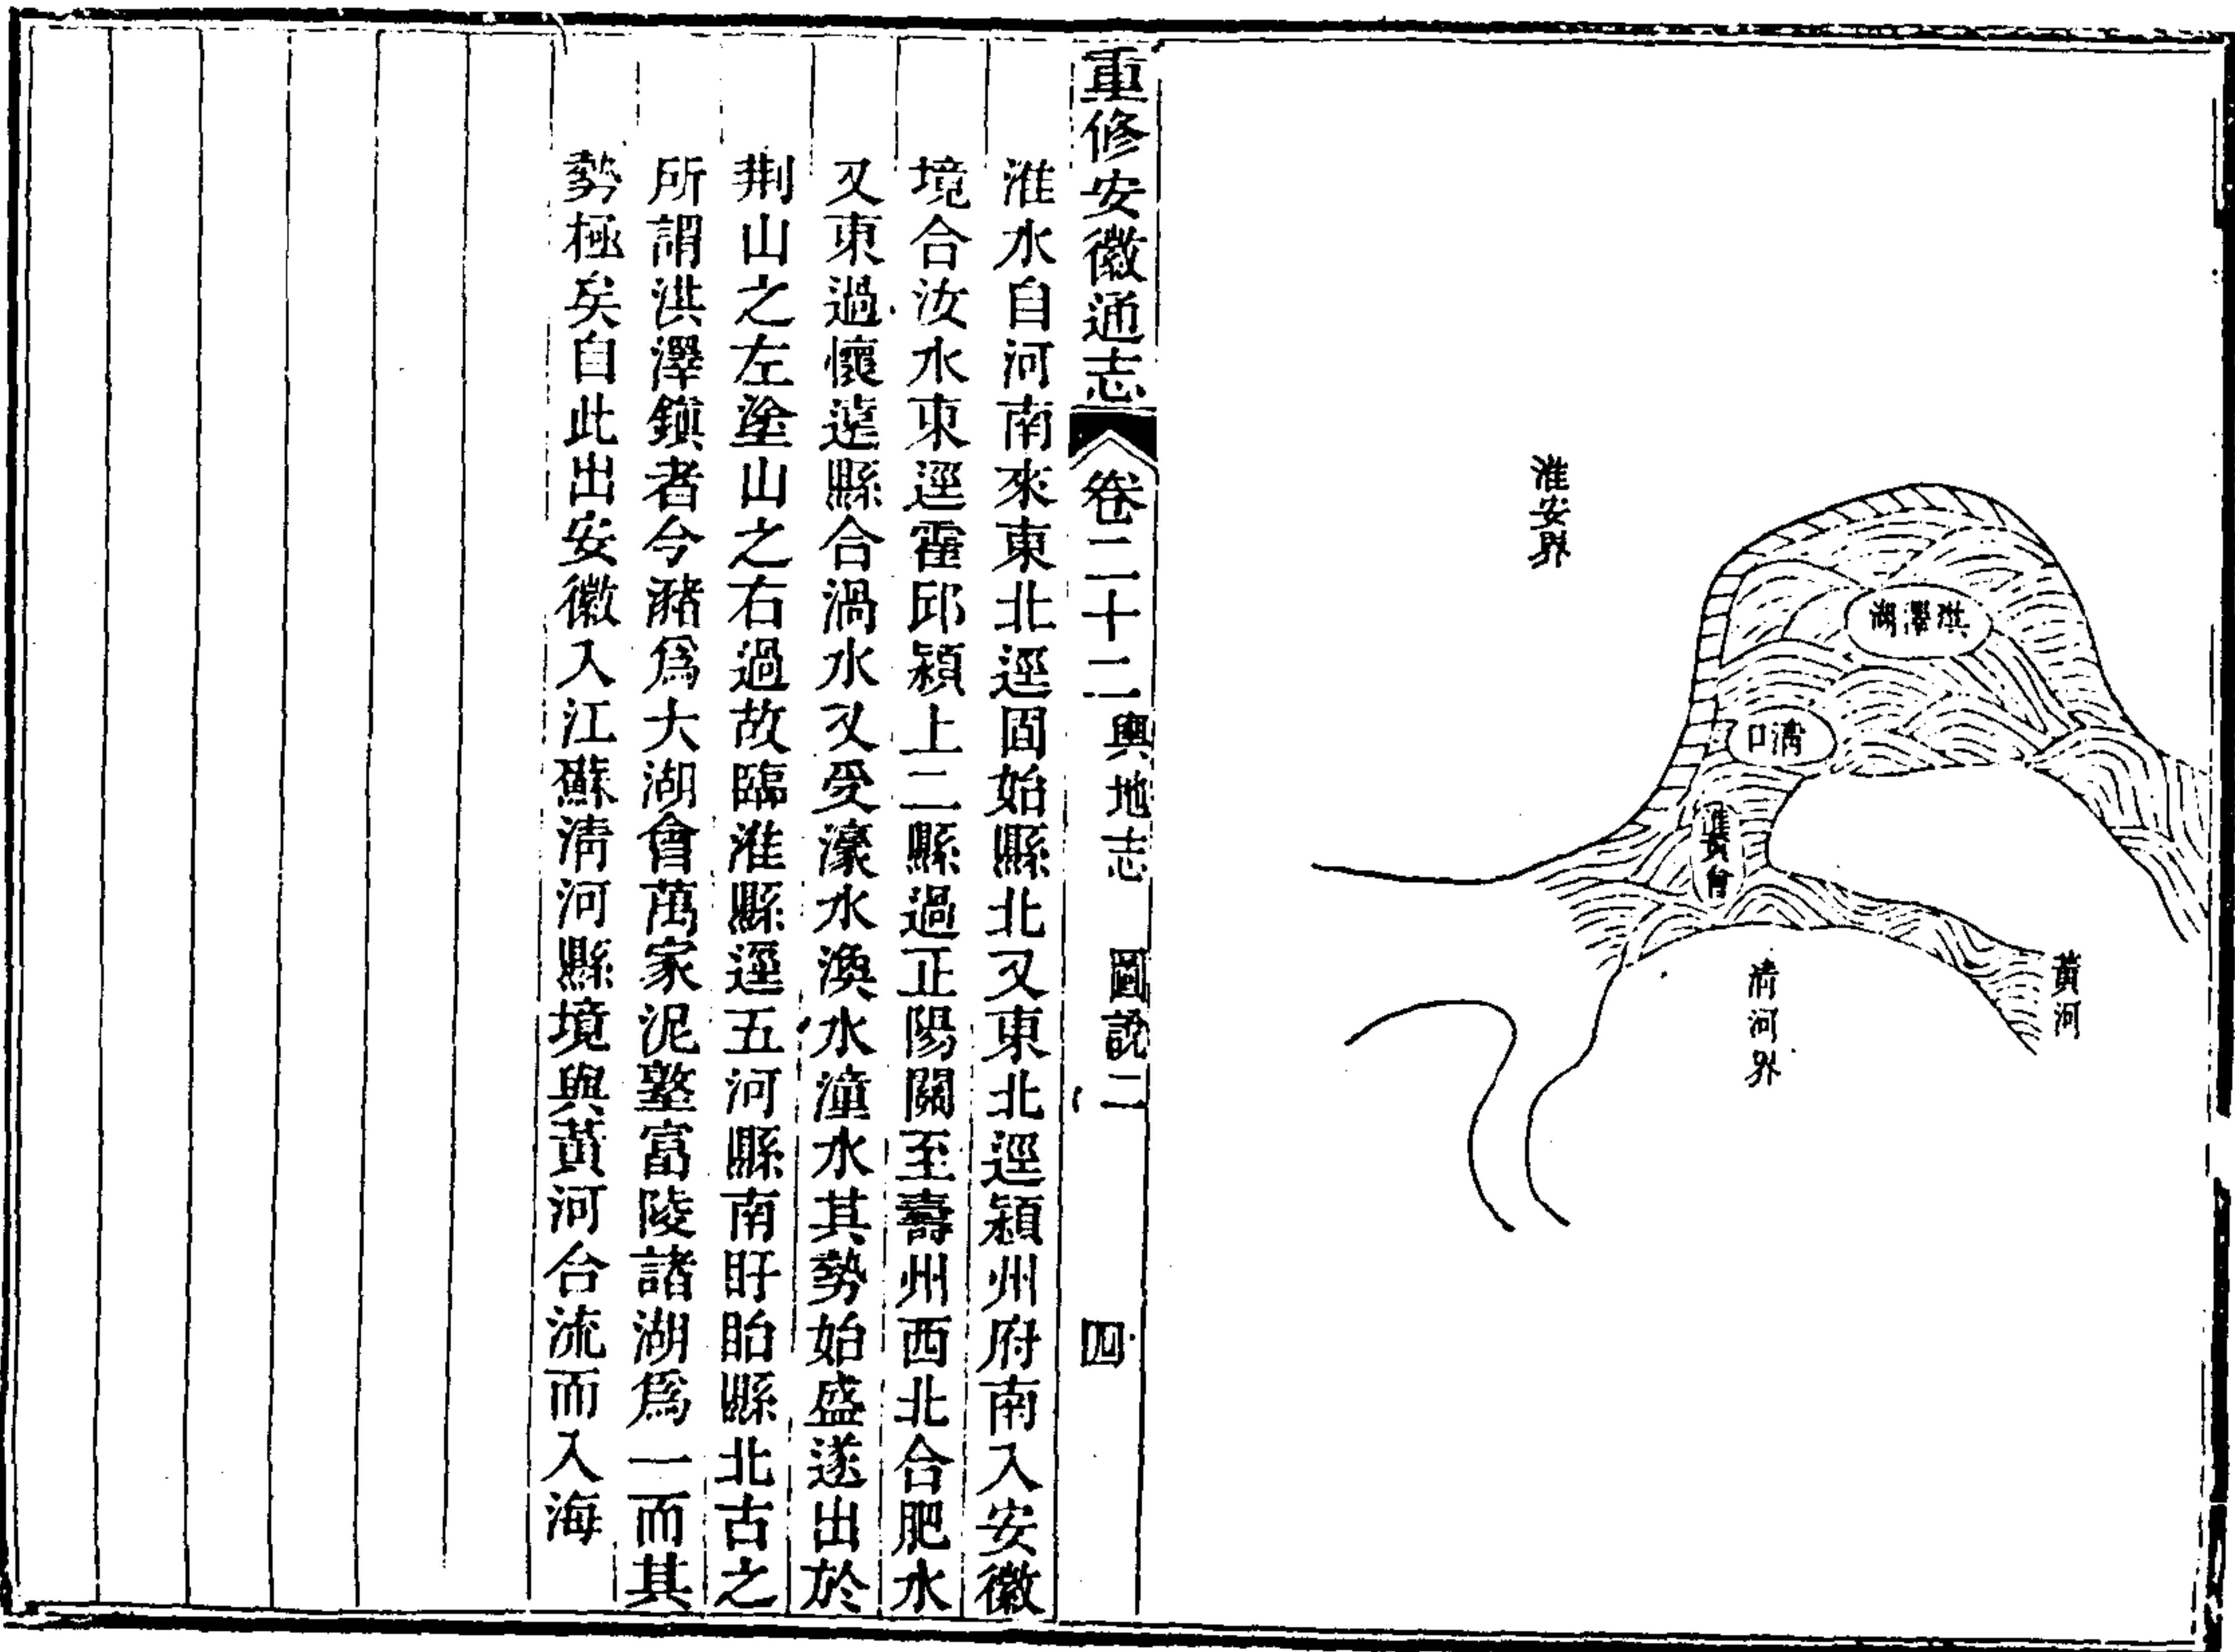 淮安界
洪澤湖
清口
淮黃會
黃河
清河界
重修安徽通志
卷二十二
輿地志
圖說二
四
淮水自河南來東北逕固始縣北又東北逕潁州府南入安徽
境合汝水東逕霍邱潁上二縣過正陽關至壽州西北合肥水
又東過懷遠縣合渦水又受濠水渙水潼水其勢始盛遂出於
荆山之左塗山之右過故臨淮縣逕五河縣南盱眙縣北古之
所謂洪澤鎮者今瀦爲大湖會萬家泥墪富陵諸湖爲一而其
勢極矣自此出安徽入江蘇清河縣境與黃河合流而入海